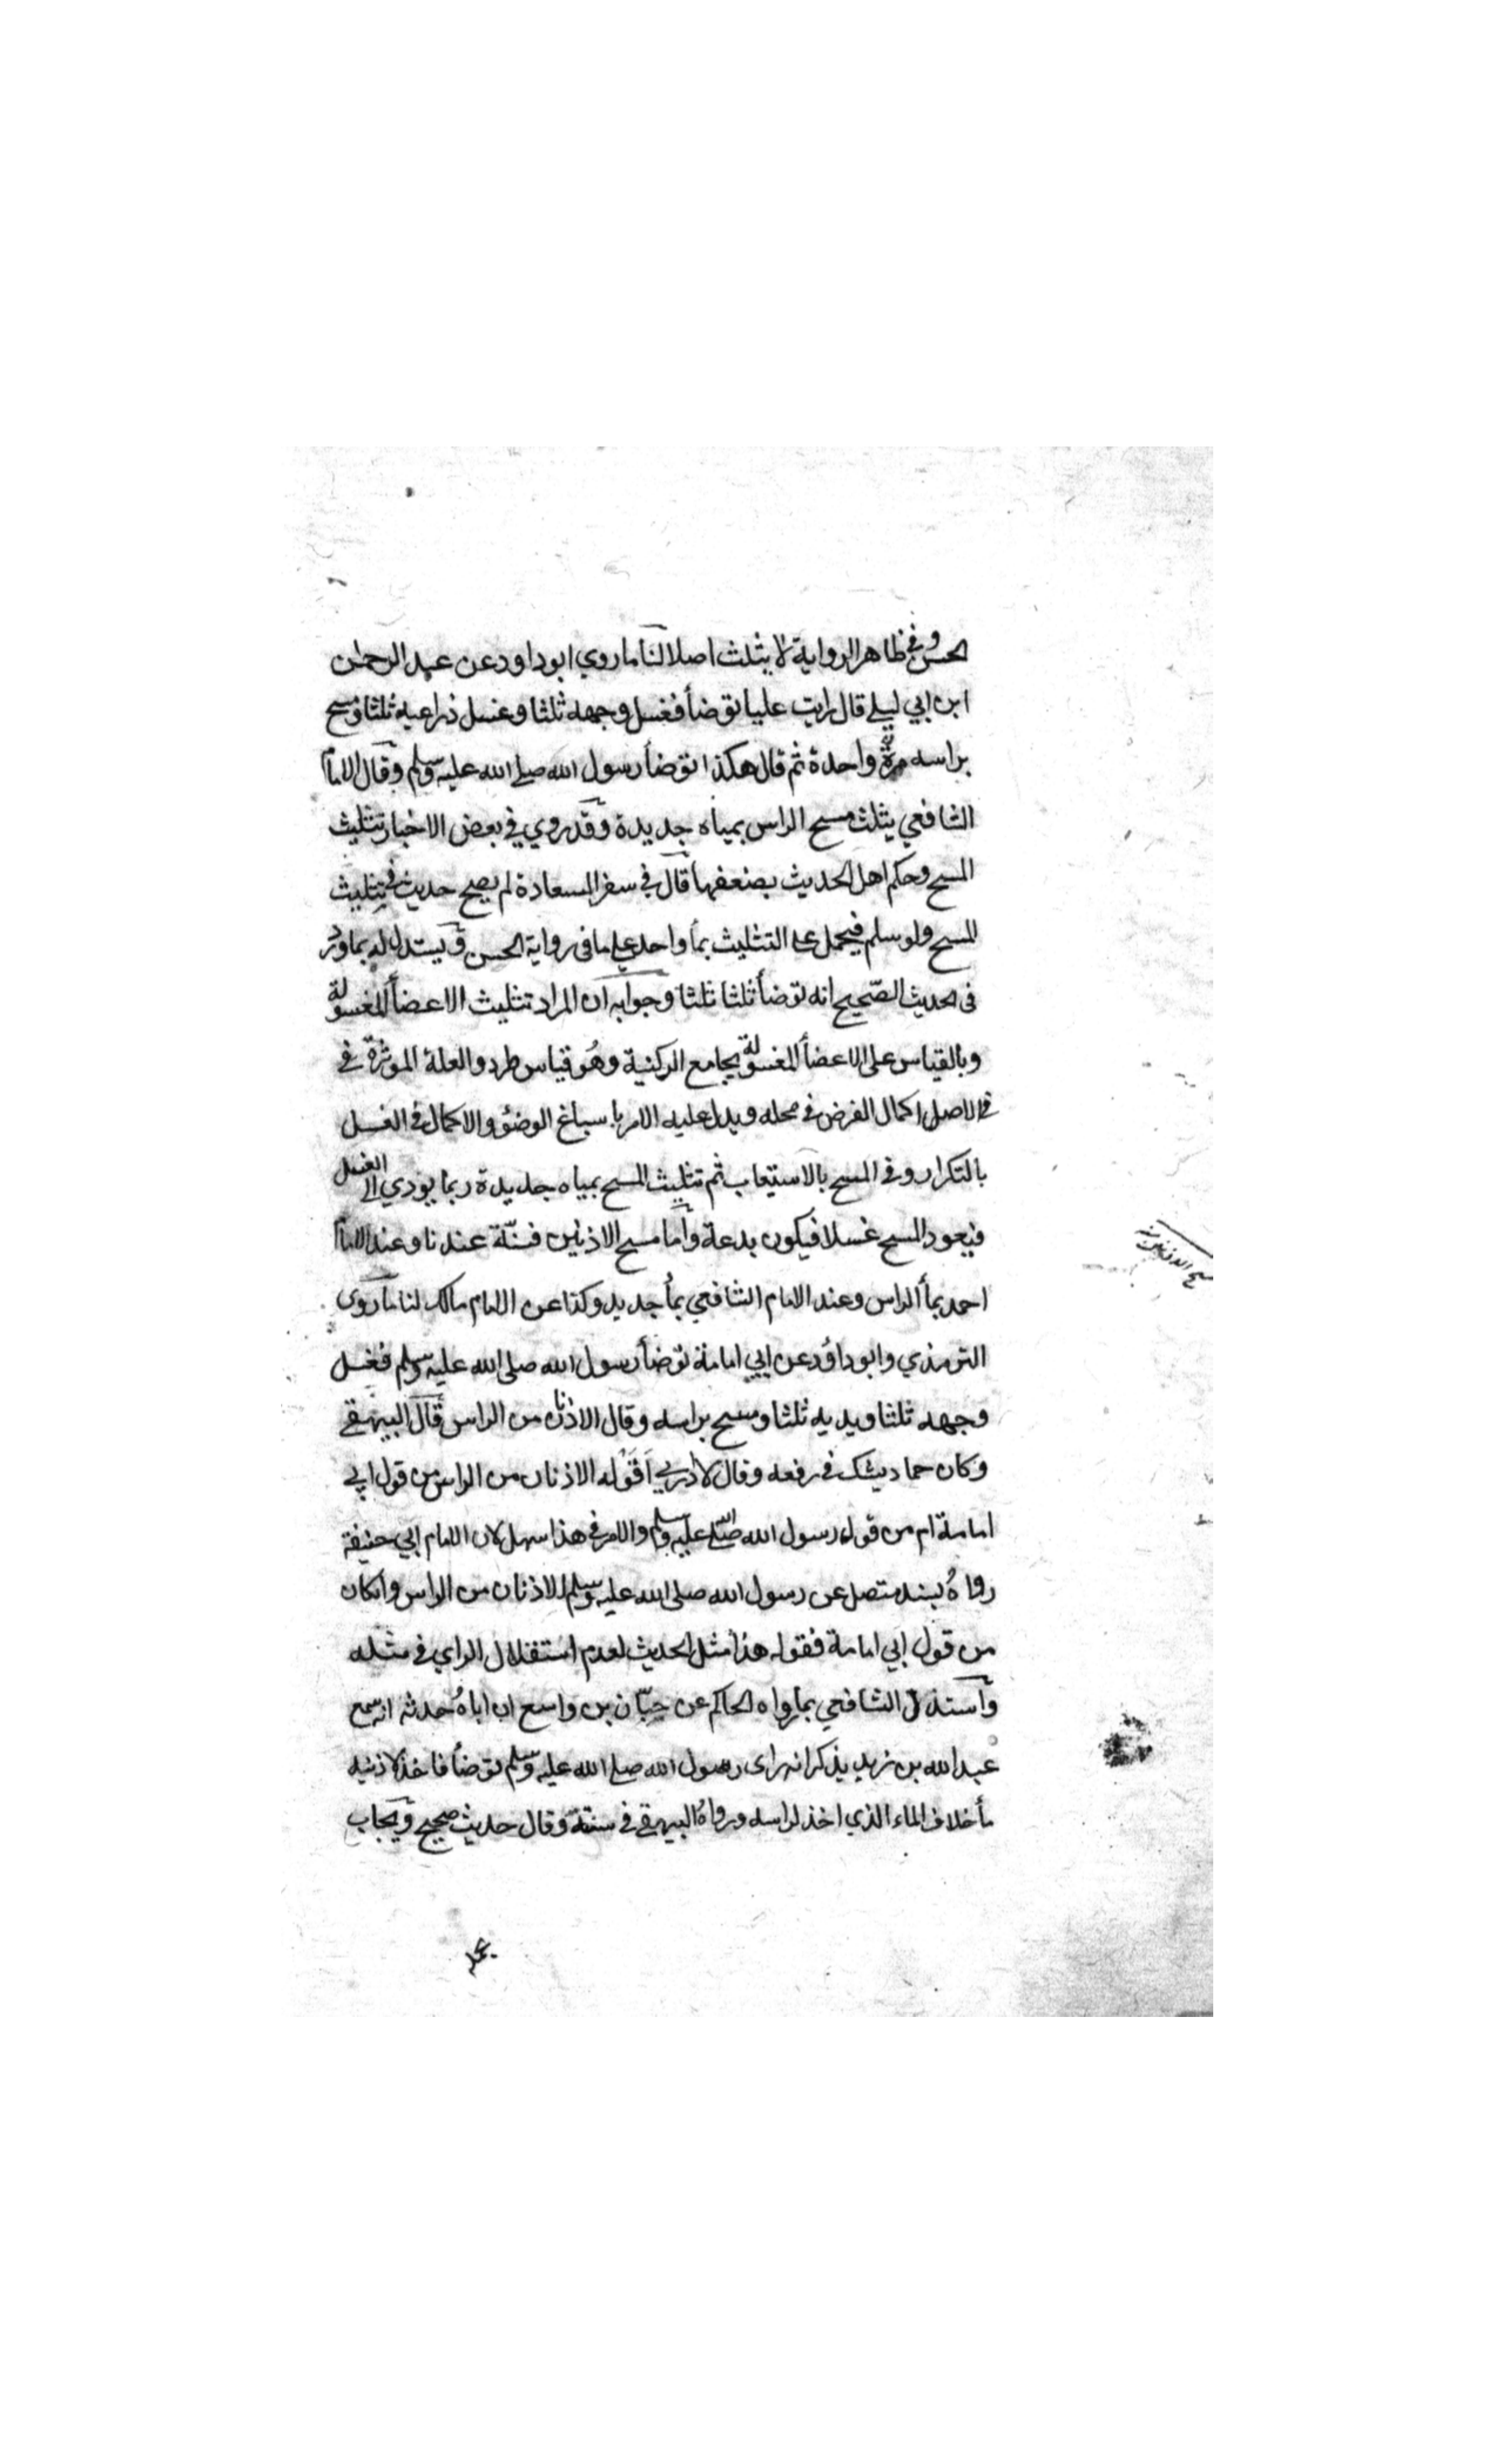 الحسن وفي ظاهر الرواية لا يثلث اصلا لنا ما روي ابو داود عن عبد الرحمن
ابن ابي ليلے قال رايت عليا توضأ فغسل وجهه ثلثا وغسل ذراعيه ثلثا ومسح
براسه مرة واحدة ثم قال هكذا توضأ رسول الله صلے الله عليه وسلم وقال الامام
الشافعي يثلث مسح الراس بمياه جديدة وقد روي في بعض الاخبار تثليث
المسح وحكم اهل الحديث بضعفها قال في سفر السعادة لم يصح حديث في تثليث
المسح ولو سلم فيحمل علے التثليث بمأ واحد علے ما في رواية الحسن ويستدل له بما ورد
في الحديث الصحيح انه توضأ ثلثا ثلثا وجوابه ان المراد تثليث الاعضأ المغسولة
وبالقياس على الاعضأ المغسولة بجامع الركنية وهو قياس طرد والعلة الموثرة في
في الاصل اكمال الفرض في محله ويدل عليه الامر باسباغ الوضوء والاكمال في الغسل
بالتكرار وفي المسح بالاستيعاب ثم تثليث المسح بمياه جديدة ربما يودي الى الغسل
فيعود المسح غسلا فيكون بدعة وأما مسح الاذنين فسنّة عندنا وعند الامام
احمد بمأ الراس وعند الامام الشافعي بمأ جديد وكذا عن الامام مالك لنا ما روى
الترمذي وابو داؤد عن ابي امامة توضأ رسول الله صلى الله عليه وسلم فغسل
وجهه ثلثا ويديه ثلثا ومسح براسه وقال الاذنان من الراس قال البيهقے
وكان حماد يشك في رفعه وقال لا ادري أقوله الاذنان من الراس من قول ابي
امامة ام من قول رسول الله صلى الله عليه وسلم والامر في هذا سهل لان الامام ابي حنيفة
رواهُ بسند متصل عن رسول الله صلى الله عليه وسلم الاذنان من الراس وان كان
من قول ابي امامة فقوله هذا مثل الحديث لعدم استقلال الراي في مثله
واستدل الشافعي بما رواه الحاكم عن حبّان بن واسع ان اباهُ حدثه انه سمع
عبد الله بن زيد يذكر انه راى رسول الله صلے الله عليه وسلم توضأ فاخذ لاذنيه
مأ خلاف الماء الذي اخذ لراسه ورواهُ البيهقے في سننه وقال حديث صحيح ويجاب